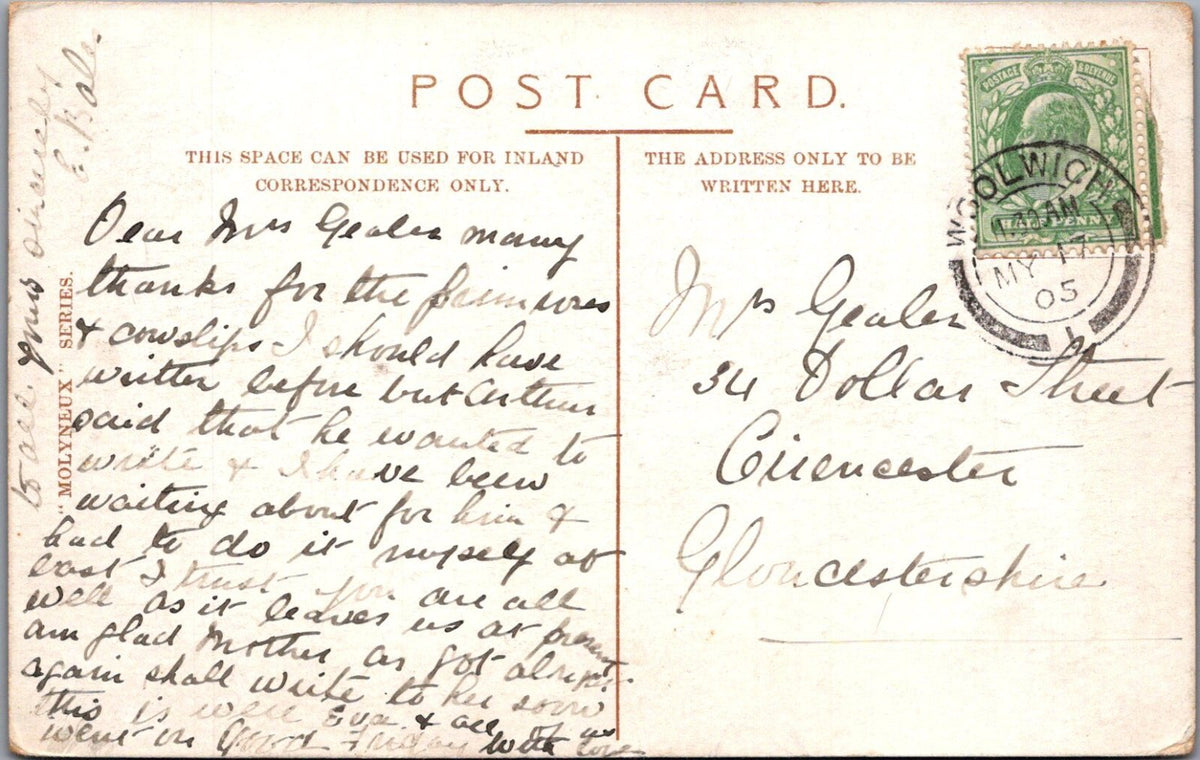 POST CARD.
THIS SPACE CAN BE USED FOR INLAND
CORRESPONDENCE ONLY.
THE ADDRESS ONLY TO BE
WRITTEN HERE.
"MOLYNEUX" SERIES.
Dear Mrs Gealer many
thanks for the primroses
& cowslips I should have
written before but Arthur
said that he wanted to
write & I have been
waiting about for him &
had to do it myself at
last I trust you are all
well as it leaves us at present
am glad Mother as got alright
again shall write to her soon
this is were Eva & all of us
went on Good Friday with love
to all yours sincerely
E. Bale.
Mrs Gealer
34 Dollar Street
Cirencester
Gloucestershire
POSTAGE & REVENUE
HALFPENNY
WOOLWICH
AM
MY 17
05
1